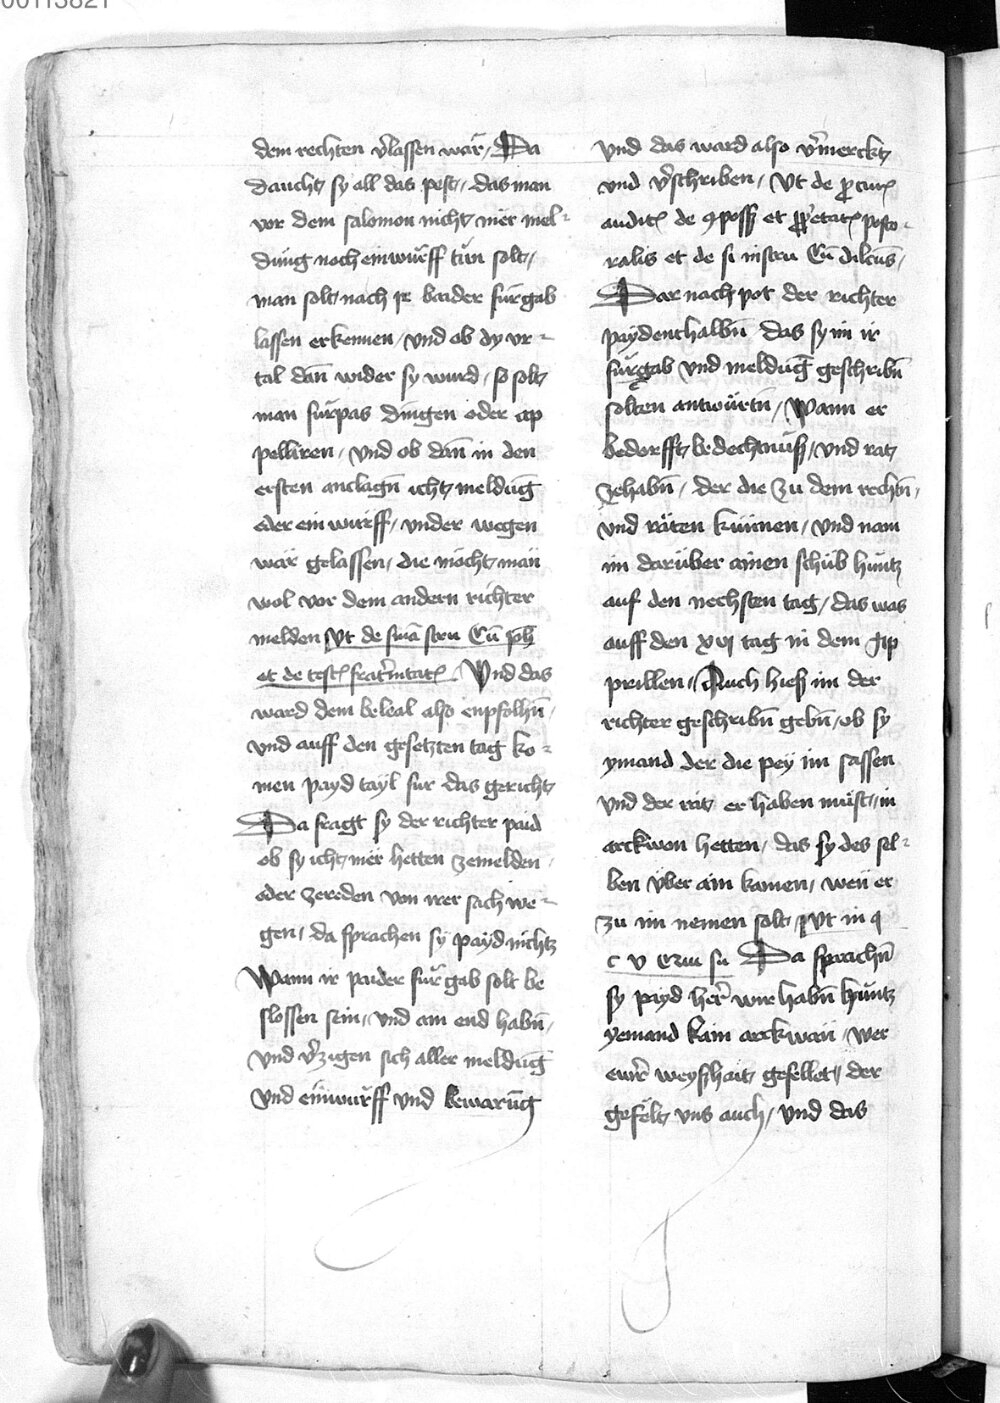 00113821
dem rechten v̉lassen wär / Da
daucht sy all das pest / das man
vor dem salomon nicht mer mel-
dūg noch einwürff tün solt /
man solt nach jr baider fürgab
lassen erkennen / vnd ob dy vr-
tail dan̄ wider sy wurd / so solt
man fürpas dingen oder ap
pelliren / vnd ob dan̄ in den
ersten anclagn̄ icht meldūg
oder ein würff / vnder wegen
wär gelassen / die möcht man
wol vor dem andern richter
melden vt de
et de test
Vnd das
ward dem belial also enpfolhn̄ /
vnd auff den gesetzten tag ko-
men payd tayl für das gericht
Da fragt sy der richter paid
ob sy icht mer hetten zemelden
oder zereden von irer sach we-
gen / da sprachen sy payd nichtz
Wann ir paider fürgab solt be
slossen sein / vnd ain end habn̄ /
vnd v̉zigen sich aller meldūg
vnd einwürff vnd bewarūg
vnd das ward also v̉merckt
vnd v̉schriben / Vt de
ralis et de
Dar nach pot der richter
paydenthalbn̄ das sy im ir
fürgab vnd meldūg geschribn̄
solten antwürtn̄ / Wann er
bedorfft bedechtnüß / vnd rat
zehabn̄ / der die zu dem rechn̄ /
vnd räten künnen / vnd nam
im darüber ainen schüb hüntz
auf den nechsten tag / das was
auff den xvj tag in dem Ap
prillen / Auch hieß im der
richter geschribn̄ gebn̄ / ob sy
ymand der die pey im sassen
vnd der rät er haben müst / in
arckwon hetten / das sy des sel-
ben vber ain kamen / wen̄ er
zu im nemen solt / vt in q
Da sprachn̄
sy payd her̉ wir habn̄ hyüntz
yemand kain arckwan / wer
ewr̉ weyßhait gefellet / der
gefelt vns auch / vnd das